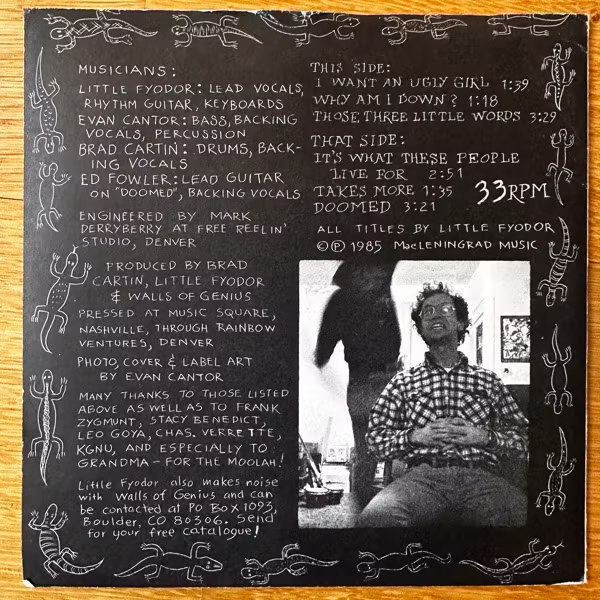 MUSICIANS:
LITTLE FYODOR: LEAD VOCALS,
RHYTHM GUITAR, KEYBOARDS
EVAN CANTOR: BASS, BACKING
VOCALS, PERCUSSION
BRAD CARTIN: DRUMS, BACK-
ING VOCALS
ED FOWLER: LEAD GUITAR
ON "DOOMED", BACKING VOCALS
ENGINEERED BY MARK
DERRYBERRY AT FREE REELIN'
STUDIO, DENVER
PRODUCED BY BRAD
CARTIN, LITTLE FYODOR
& WALLS OF GENIUS
PRESSED AT MUSIC SQUARE,
NASHVILLE, THROUGH RAINBOW
VENTURES, DENVER
PHOTO, COVER & LABEL ART
BY EVAN CANTOR
MANY THANKS TO THOSE LISTED
ABOVE AS WELL AS TO FRANK
ZYGMUNT, STACY BENEDICT,
LEO GOYA, CHAS. VERRETTE,
KGNU, AND ESPECIALLY TO
GRANDMA – FOR THE MOOLAH!
Little Fyodor also makes noise
with Walls of Genius and can
be contacted at PO Box 1093,
Boulder, CO 80306. Send
for your free catalogue!
THIS SIDE:
I WANT AN UGLY GIRL 1:39
WHY AM I DOWN? 1:18
THOSE THREE LITTLE WORDS 3:29
THAT SIDE:
IT'S WHAT THESE PEOPLE
LIVE FOR 2:51
TAKES MORE 1:35
DOOMED 3:21
33RPM
ALL TITLES BY LITTLE FYODOR
©℗ 1985 MacLENINGRAD MUSIC